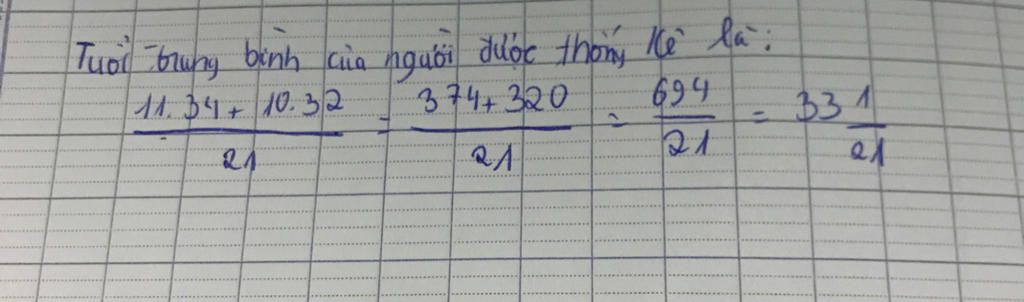 Tuổi trung bình của người được thống kê là:
11.34 + 10.32 / 21 = 374 + 320 / 21 = 694 / 21 = 33 1/21